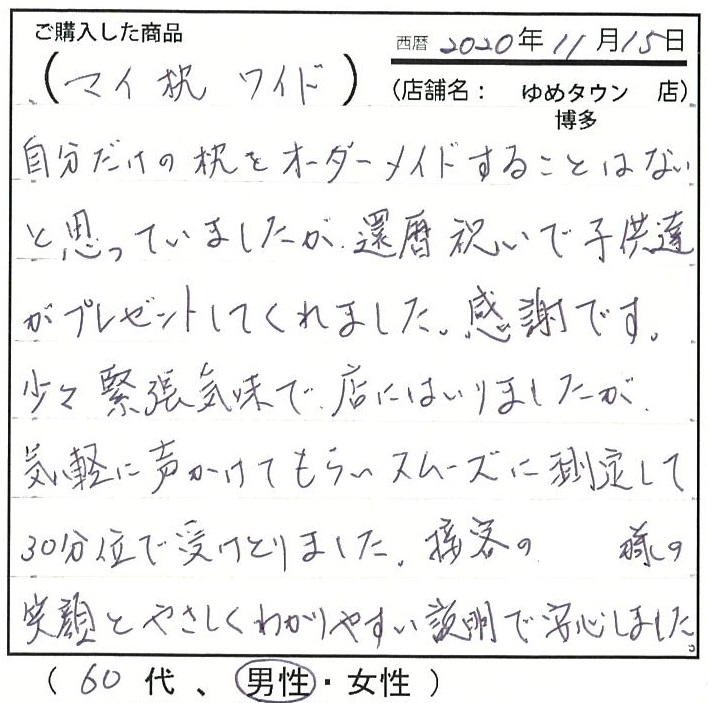 ご購入した商品
西暦 2020年 11月15日
(マイ枕 ワイド)
(店舗名: ゆめタウン 店)
博多
自分だけの枕をオーダーメイドすることはない
と思っていましたが、還暦祝いで子供達
がプレゼントしてくれました。感謝です。
少々緊張気味で、店にはいりましたが、
気軽に声かけてもらいスムーズに測定して
30分位で受けとりました。接客の 様の
笑顔とやさしくわかりやすい説明で安心しました。
(60代、男性・女性)